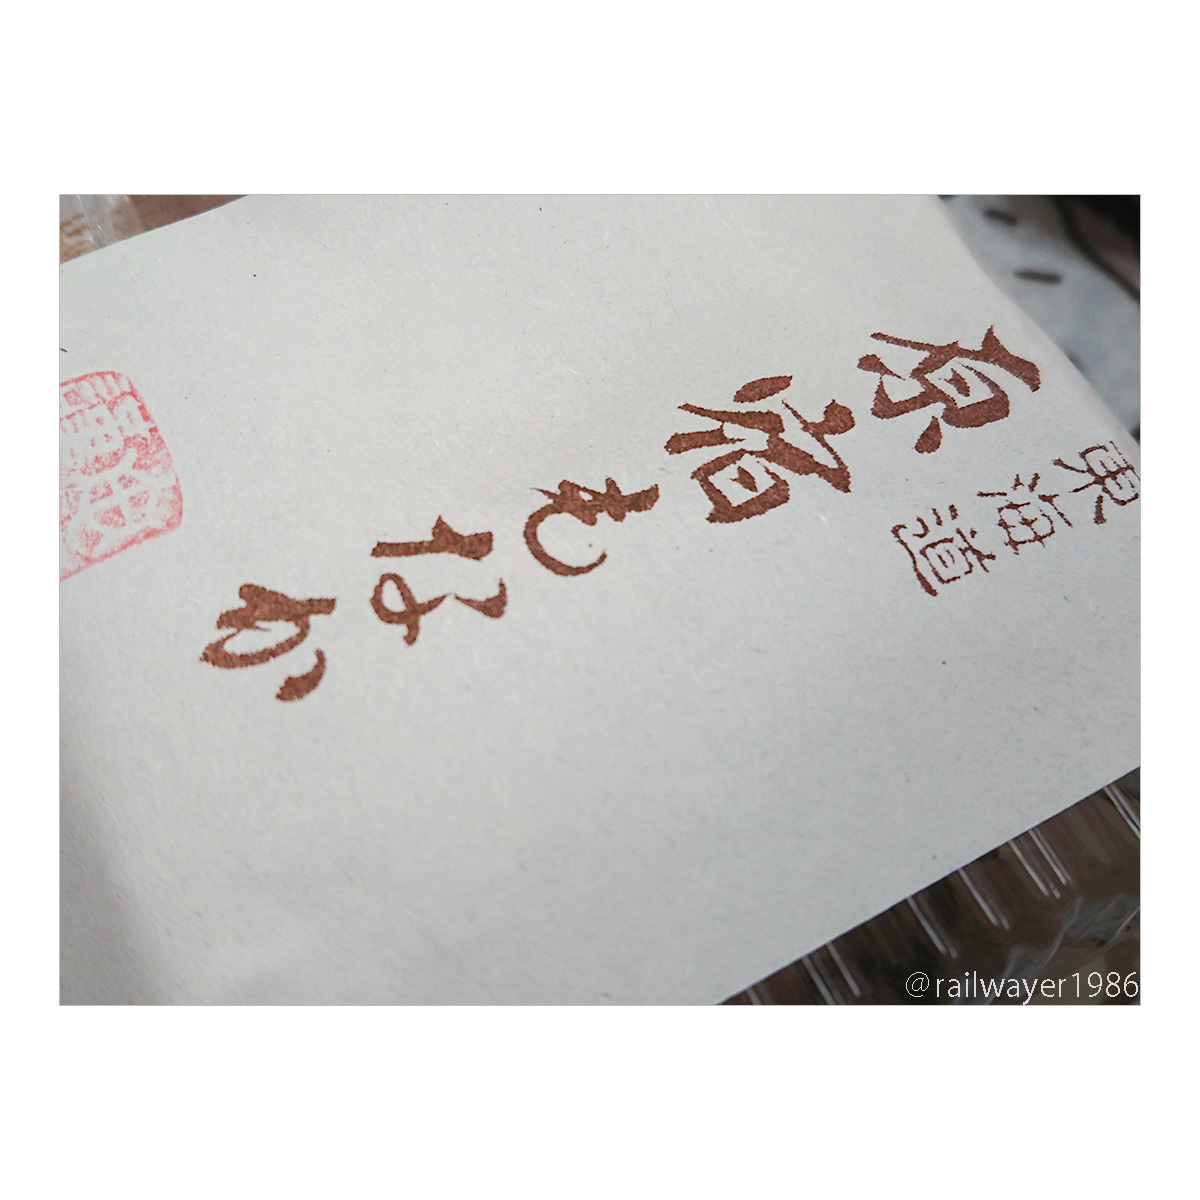 東海道
原宿もなか
@railwayer1986